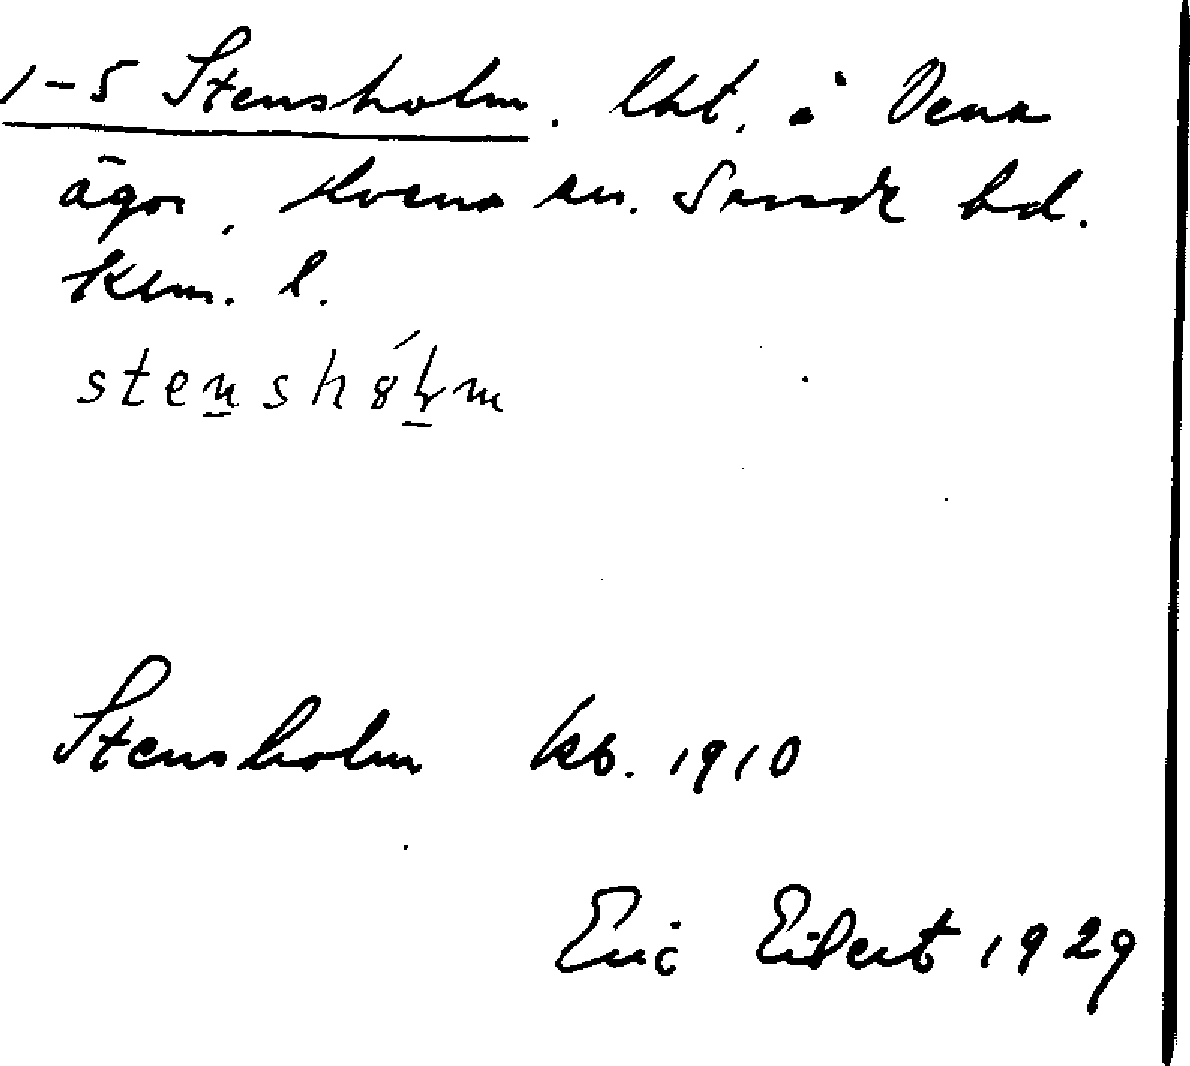 1-5 Stensholm. lht. i Vena
ägor, Vena sn. Sevede hd.
Klm. l.
stensh
Stensholm kb. 1910
Eric Eilert 1929